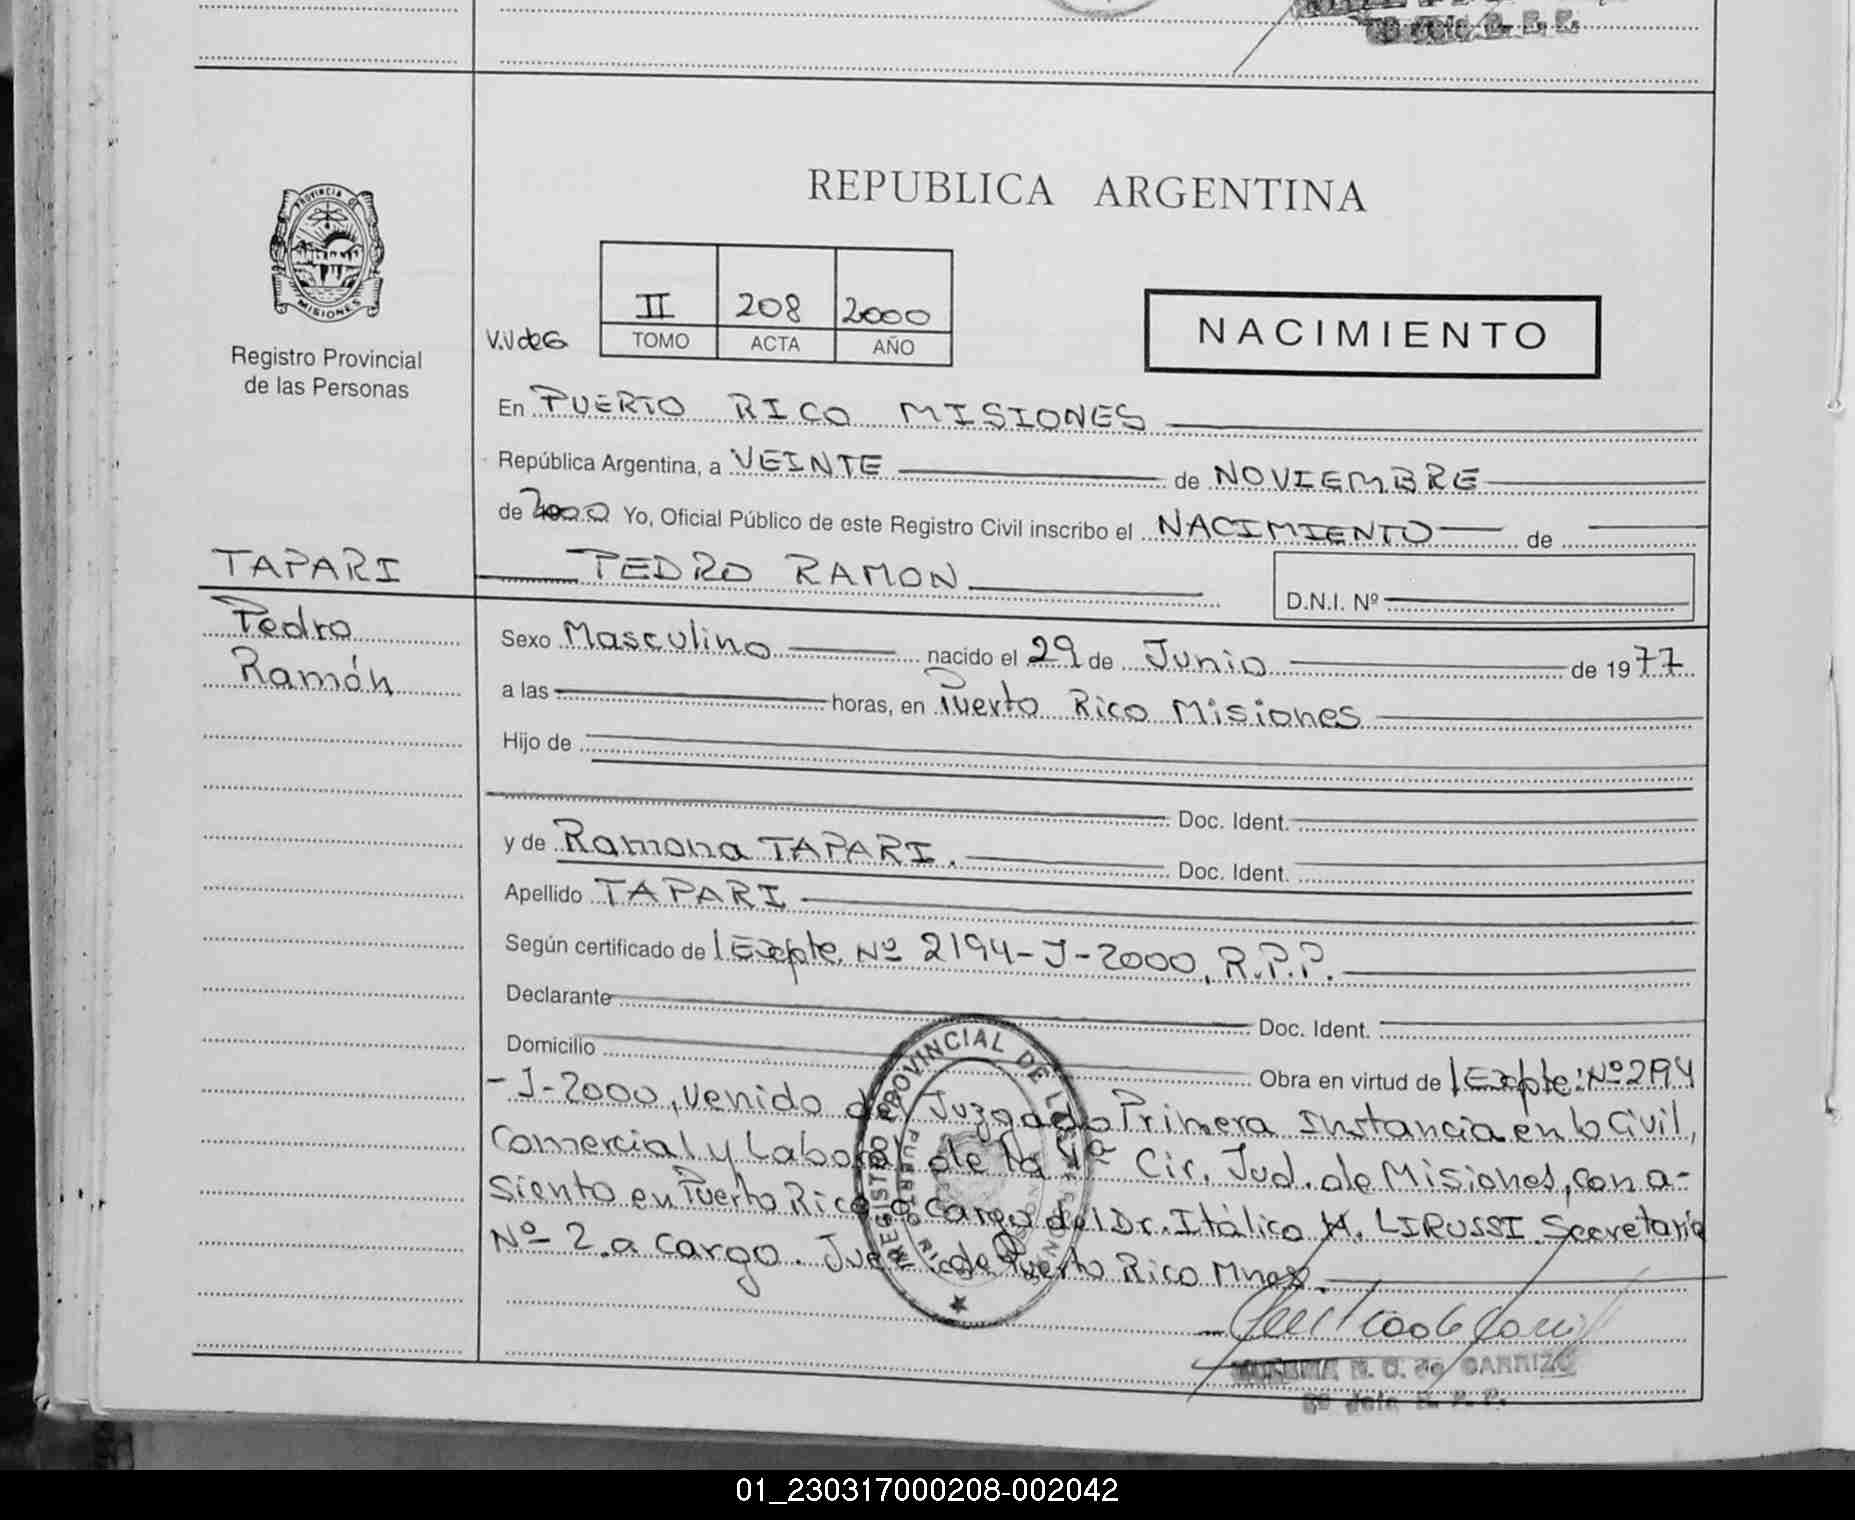 PROVINCIA DE
MISIONES
Registro Provincial
de las Personas
REPUBLICA ARGENTINA
II 208 2000
V.V de G TOMO ACTA AÑO
NACIMIENTO
En PUERTO RICO MISIONES
República Argentina, a VEINTE de NOVIEMBRE
de 2000 Yo, Oficial Público de este Registro Civil inscribo el NACIMIENTO de
TAPARI
PEDRO RAMON
D.N.I. Nº
Pedro
Ramón
Sexo Masculino nacido el 29 de Junio de 1977
a las horas, en Puerto Rico Misiones
Hijo de
Doc. Ident.
y de Ramona TAPARI. Doc. Ident.
Apellido TAPARI
Según certificado de Expte. Nº 2194-J-2000, R.P.P.
Declarante Doc. Ident.
Domicilio Obra en virtud de Expte: Nº 2194
-J-2000, venido del Juzgado Primera Instancia en lo Civil,
Comercial y Laboral de la 4ª Cir. Jud. de Misiones, con a-
siento en Puerto Rico a cargo del Dr. Itálico M. LIRUSSI. Secretaría
Nº 2. a cargo. de Puerto Rico Mnes.
REGISTRO PROVINCIAL DE
PUERTO RICO
de CARRIZO